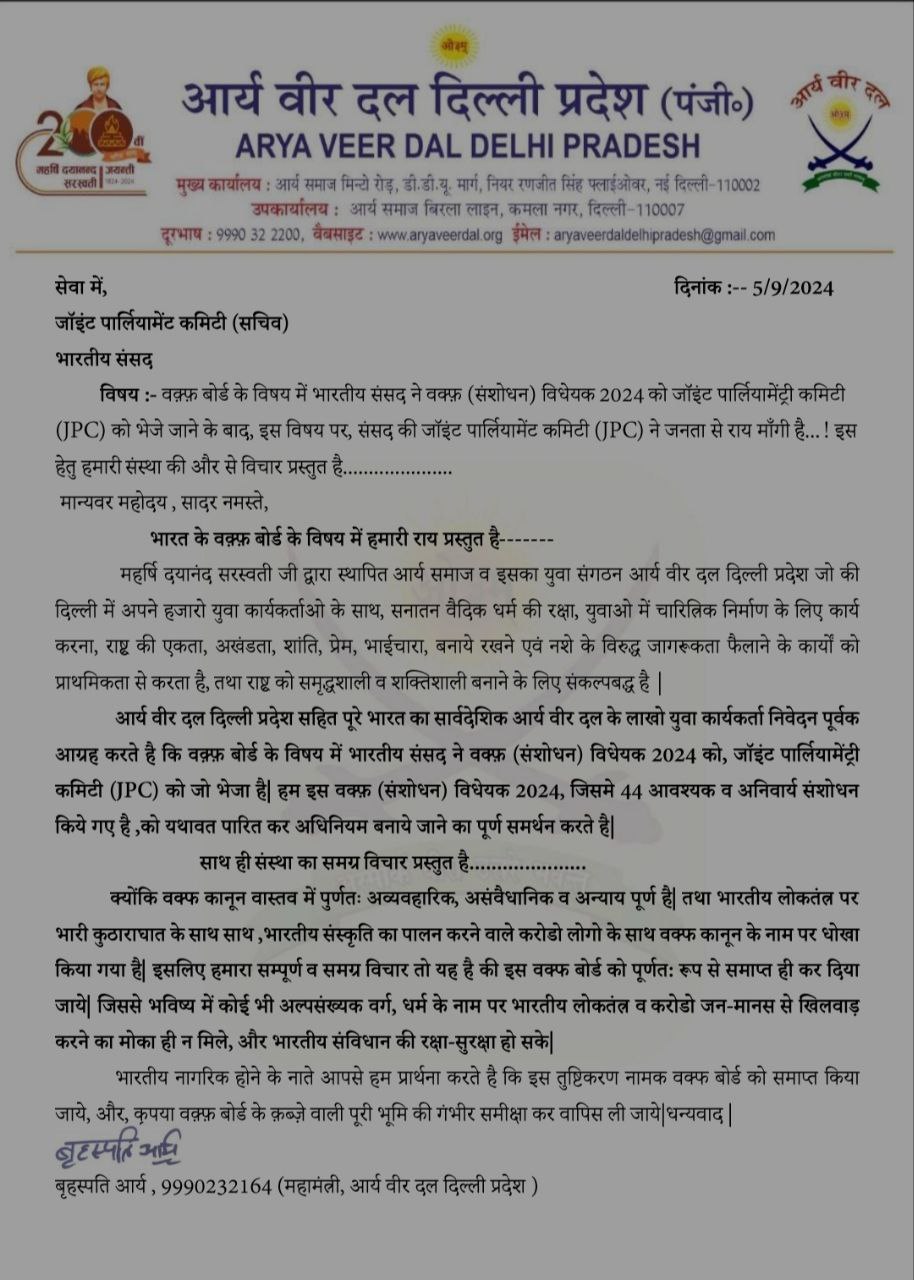 ओ३म्
आर्य वीर दल दिल्ली प्रदेश (पंजी॰)
ARYA VEER DAL DELHI PRADESH
200वीं
महर्षि दयानन्द सरस्वती
जयन्ती
1824-2024
आर्य वीर दल
ओ३म्
मुख्य कार्यालय : आर्य समाज मिन्टो रोड़, डी.डी.यू. मार्ग, नियर रणजीत सिंह फ्लाईओवर, नई दिल्ली-110002
उपकार्यालय : आर्य समाज बिरला लाइन, कमला नगर, दिल्ली-110007
दूरभाष : 9990 32 2200, वैबसाइट : www.aryaveerdal.org ईमेल : aryaveerdaldelhipradesh@gmail.com
सेवा में, दिनांक :-- 5/9/2024
जॉइंट पार्लियामेंट कमिटी (सचिव)
भारतीय संसद
विषय :- वक़्फ़ बोर्ड के विषय में भारतीय संसद ने वक्फ़ (संशोधन) विधेयक 2024 को जॉइंट पार्लियामेंट्री कमिटी
(JPC) को भेजे जाने के बाद, इस विषय पर, संसद की जॉइंट पार्लियामेंट कमिटी (JPC) ने जनता से राय माँगी है...! इस
हेतु हमारी संस्था की और से विचार प्रस्तुत है.....................
मान्यवर महोदय , सादर नमस्ते,
भारत के वक़्फ़ बोर्ड के विषय में हमारी राय प्रस्तुत है-------
महर्षि दयानंद सरस्वती जी द्वारा स्थापित आर्य समाज व इसका युवा संगठन आर्य वीर दल दिल्ली प्रदेश जो की
दिल्ली में अपने हजारो युवा कार्यकर्ताओ के साथ, सनातन वैदिक धर्म की रक्षा, युवाओ में चारित्रिक निर्माण के लिए कार्य
करना, राष्ट्र की एकता, अखंडता, शांति, प्रेम, भाईचारा, बनाये रखने एवं नशे के विरुद्ध जागरूकता फैलाने के कार्यों को
प्राथमिकता से करता है, तथा राष्ट्र को समृद्धशाली व शक्तिशाली बनाने के लिए संकल्पबद्ध है |
आर्य वीर दल दिल्ली प्रदेश सहित पूरे भारत का सार्वदेशिक आर्य वीर दल के लाखो युवा कार्यकर्ता निवेदन पूर्वक
आग्रह करते है कि वक़्फ़ बोर्ड के विषय में भारतीय संसद ने वक्फ़ (संशोधन) विधेयक 2024 को, जॉइंट पार्लियामेंट्री
कमिटी (JPC) को जो भेजा है| हम इस वक्फ़ (संशोधन) विधेयक 2024, जिसमे 44 आवश्यक व अनिवार्य संशोधन
किये गए है ,को यथावत पारित कर अधिनियम बनाये जाने का पूर्ण समर्थन करते है|
साथ ही संस्था का समग्र विचार प्रस्तुत है.....................
क्योंकि वक्फ कानून वास्तव में पुर्णतः अव्यवहारिक, असंवैधानिक व अन्याय पूर्ण है| तथा भारतीय लोकतंत्र पर
भारी कुठाराघात के साथ साथ ,भारतीय संस्कृति का पालन करने वाले करोडो लोगो के साथ वक्फ कानून के नाम पर धोखा
किया गया है| इसलिए हमारा सम्पूर्ण व समग्र विचार तो यह है की इस वक्फ बोर्ड को पूर्णत: रूप से समाप्त ही कर दिया
जाये| जिससे भविष्य में कोई भी अल्पसंख्यक वर्ग, धर्म के नाम पर भारतीय लोकतंत्र व करोडो जन-मानस से खिलवाड़
करने का मोका ही न मिले, और भारतीय संविधान की रक्षा-सुरक्षा हो सके|
भारतीय नागरिक होने के नाते आपसे हम प्रार्थना करते है कि इस तुष्टिकरण नामक वक्फ बोर्ड को समाप्त किया
जाये, और, कृपया वक़्फ़ बोर्ड के क़ब्ज़े वाली पूरी भूमि की गंभीर समीक्षा कर वापिस ली जाये|धन्यवाद |
बृहस्पति आर्य
बृहस्पति आर्य , 9990232164 (महामंत्री, आर्य वीर दल दिल्ली प्रदेश )